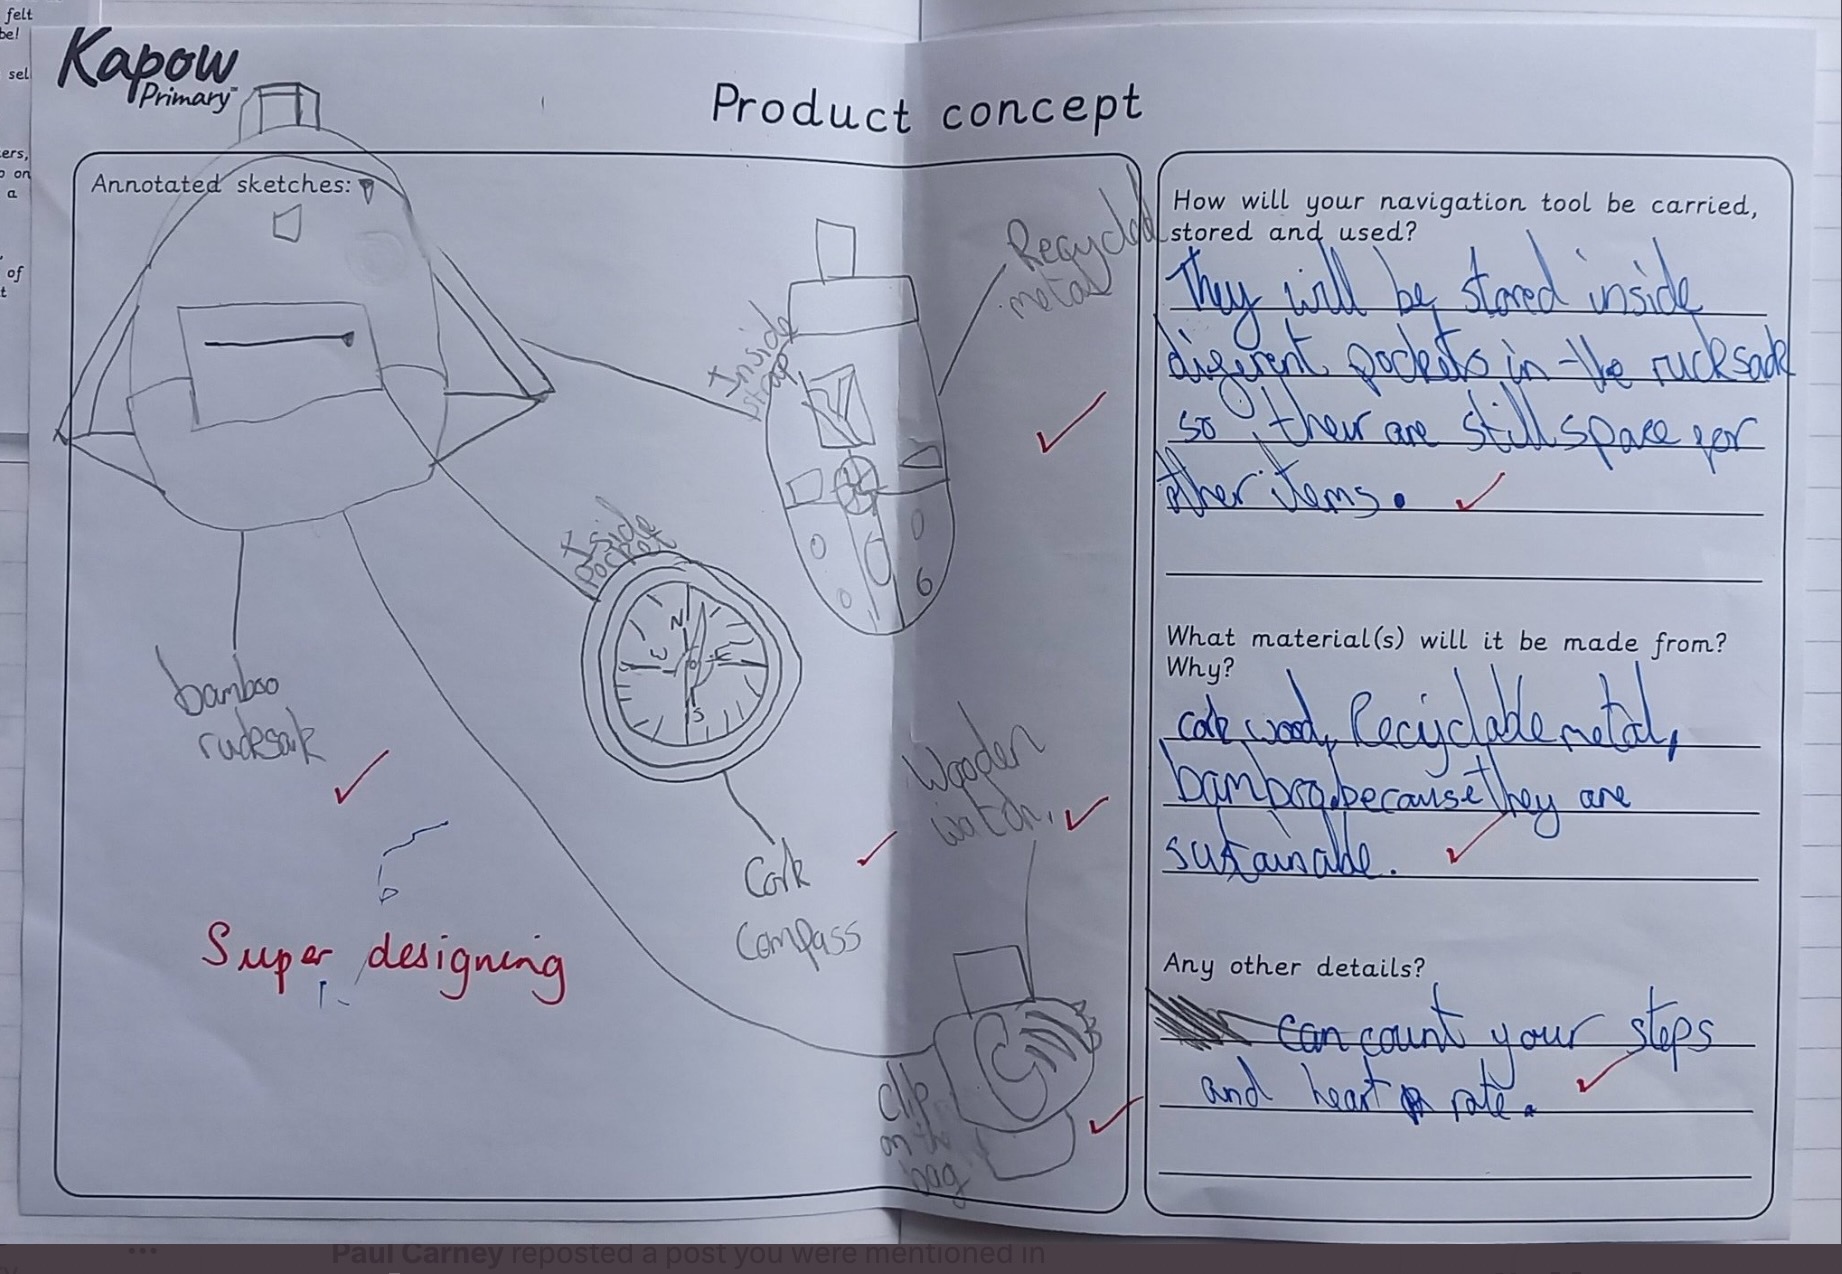 felt
be!
sel
ers,
o on
a
of
t
Kapow
Primary
Product concept
Annotated sketches:
Recycled
metal
Inside
strap
Iside
pocket
N
E
S
bamboo
rucksak
Wooden
watch.
Cork
Compass
Super designing
clip
on the
bag
How will your navigation tool be carried,
stored and used?
They will be stored inside
different pockets in the rucksack
so their are still space for
other items.
What material(s) will it be made from?
Why?
cork wood, Recyclable metal,
bamboo because they are
sustainable.
Any other details?
can count your steps
and heart rate.
Paul Carney reposted a post you were mentioned in